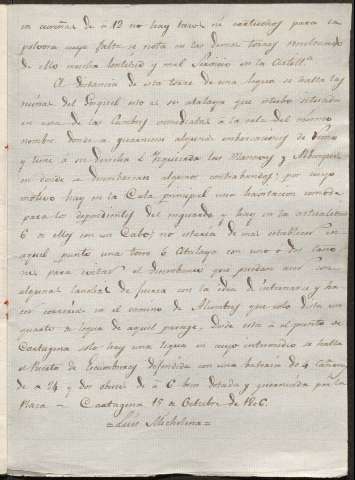 en cureñas de á 12 no hay tacos ni cartuchos para la
polvora cuya falta se nota en las demas torres resultando
de ello mucha lentitud y mal servicio en la Artillª
A distancia de esta torre de una legua se halla las
ruinas del Gorguel esto es su atalaya que estubo situada
en una de las cumbres inmediatas á la cala del mismo
nombre donde se guarnecen algunas embarcaciones de
y tiene á su derecha é Izquierda las Mannos y Albuquer
en donde se desembarcan algunos contrabandos; por cuyo
motivo hay en la Cala principal una havitacion comoda
para los dependientes del resguardo y hay en la actualidad
6 de ellos con un Cabo; no estaria de mas establecer en
aquel punto una torre ó Atalaya con uno ó dos caño
nes para evitar el desembarco que puedan acer con
algunas lanchas de fuerza con la idea de internarse y ha
cer correrias en el camino de Alumbres que solo dista un
quarto de legua de aquel parage, desde esta á el puerto de
Cartagena solo hay una legua en cuyo intermedio se halla
el Puerto de Escombreras defendida con una bateria de 4 Cañones
de á 24 y dos obuses de á 6 bien dotada y guarnecida por la
Plaza — Cartagena 15 de Octubre de
=Luis Michelena=